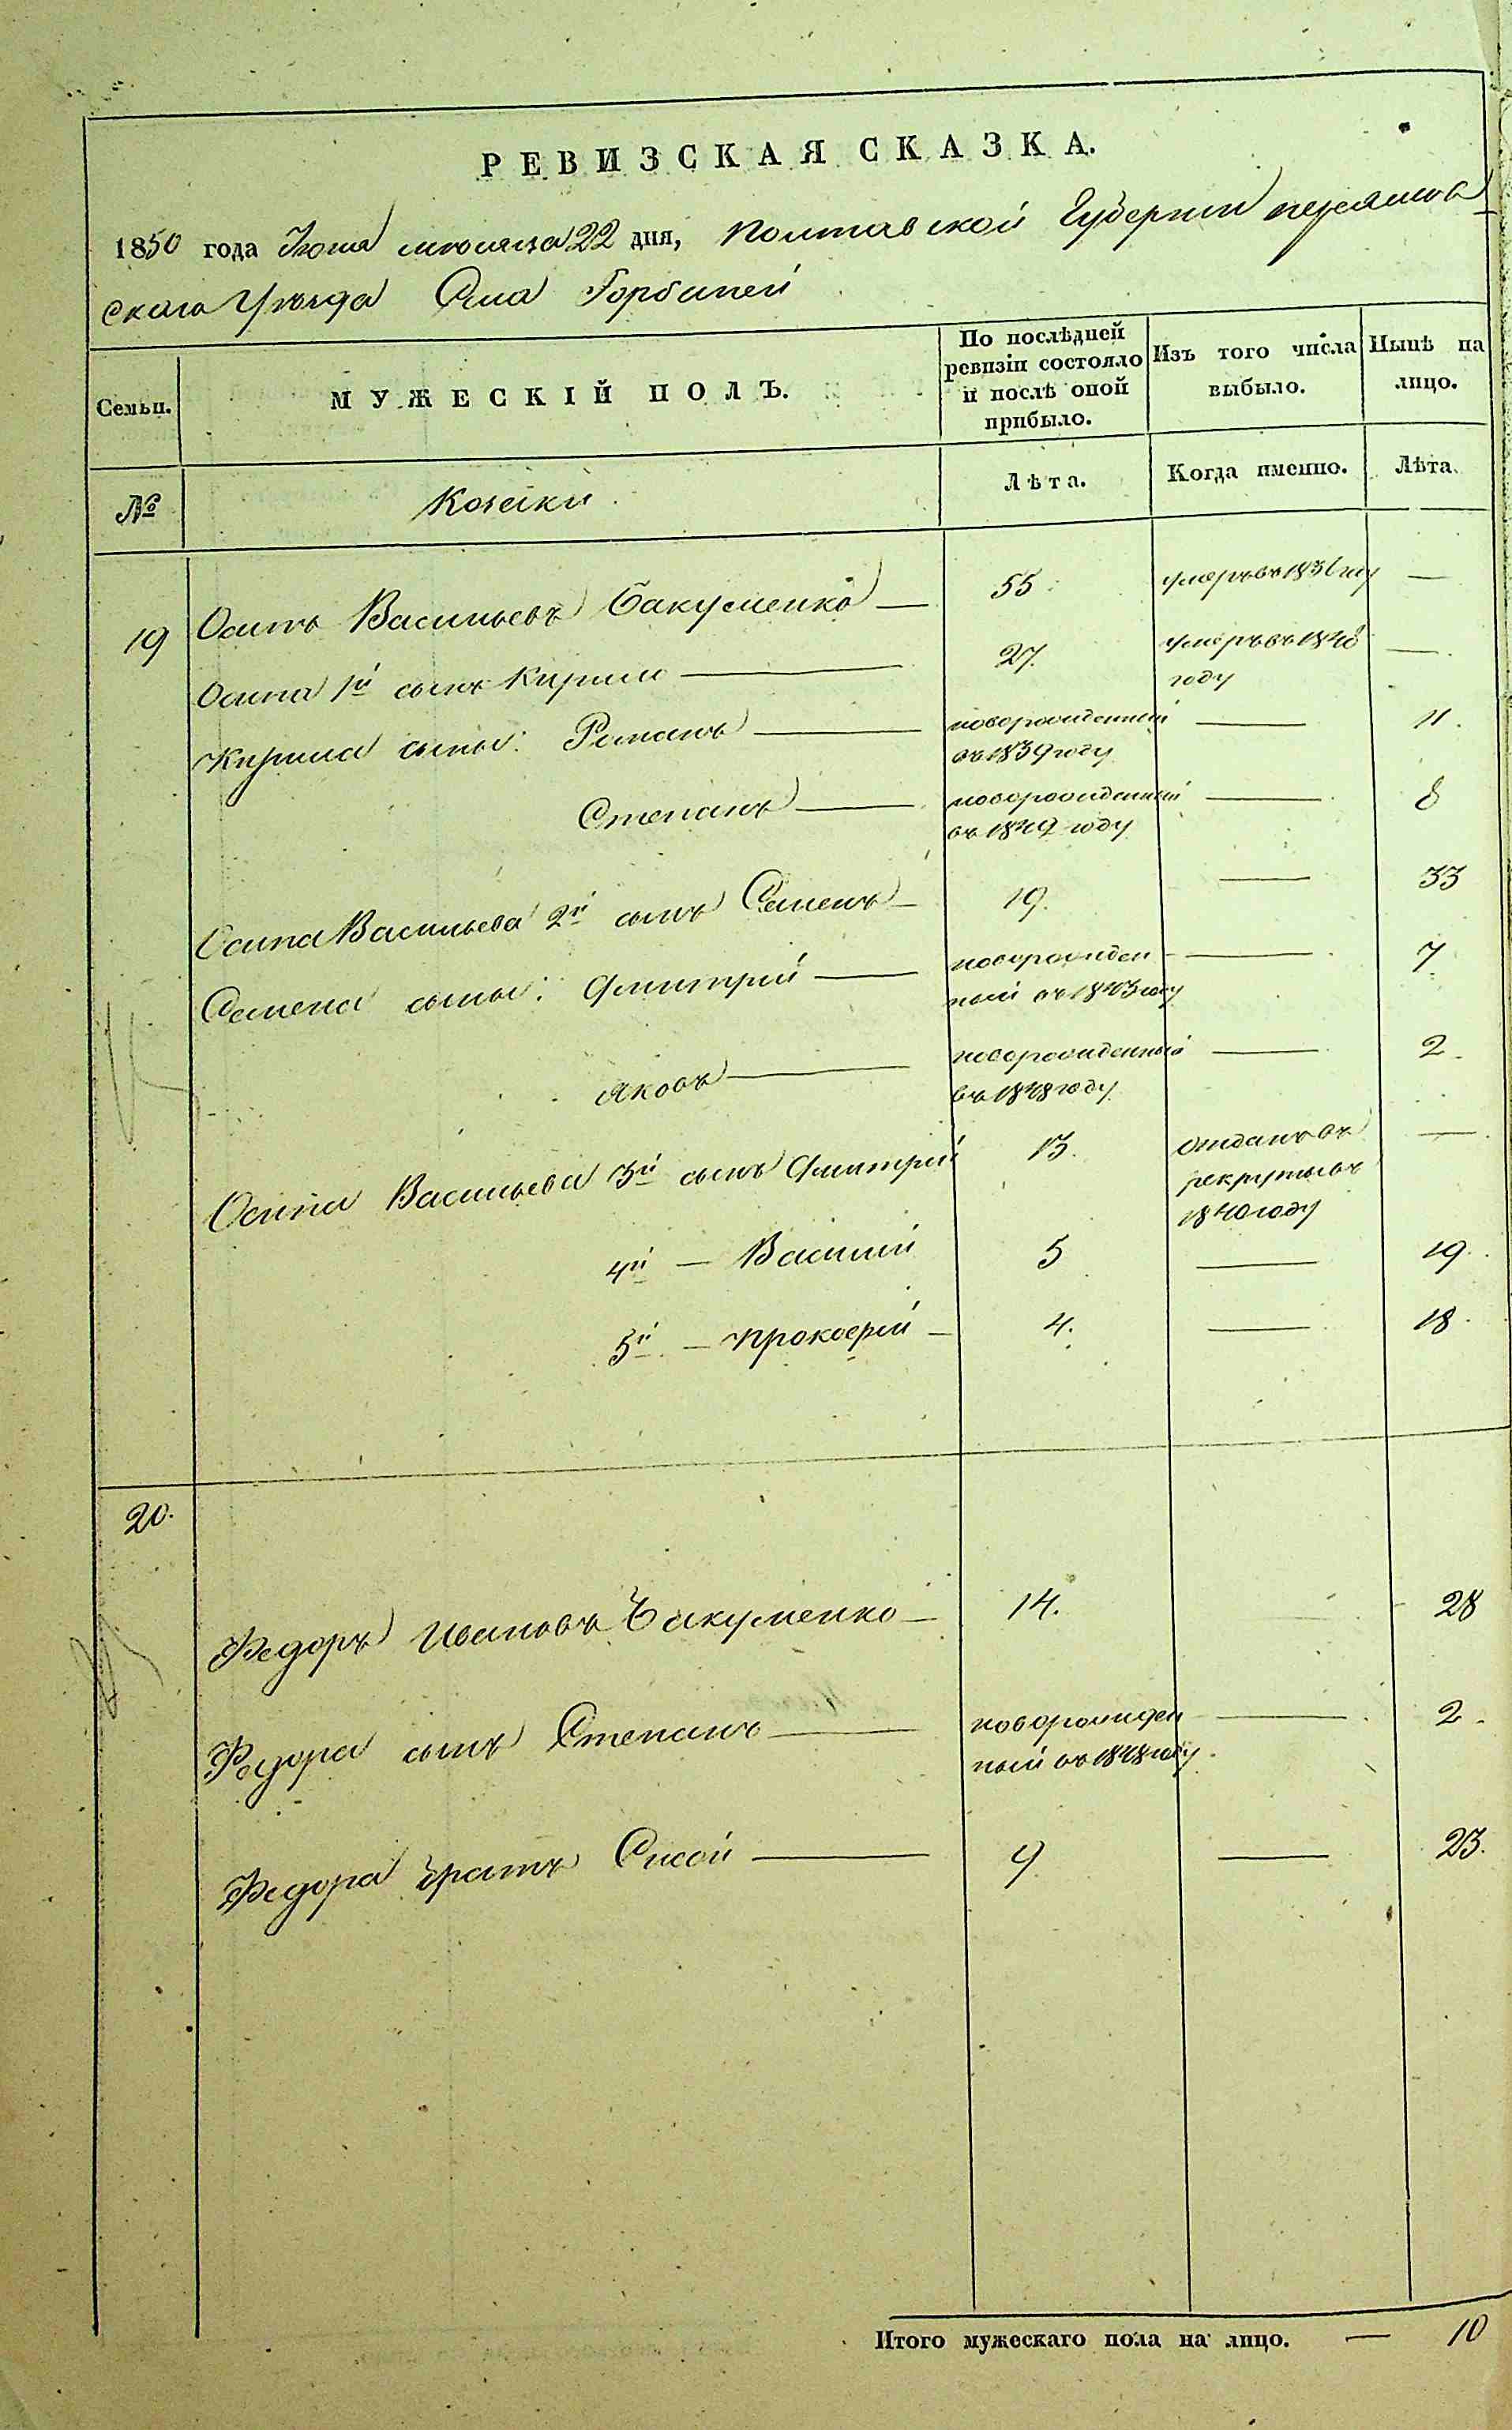 РЕВИЗСКАЯ СКАЗКА.
1850 года Июня мѣсяца 22 дня, Полтавской Губерніи переяслов
скаго Уѣзда Села Горбаней
Семьи.
МУЖЕСКІЙ ПОЛЪ.
По послѣдней
ревизіи состояло
и послѣ оной
прибыло.
Изъ того числа
выбыло.
Нынѣ на
лицо.
№
Козаки
Лѣта.
Когда именно.
Лѣта.
19 Осипъ Васильевъ Бакуменко — 55 умеръ въ 1836 году —
Осипа 1й сынъ Кирило — 27. умеръ въ 1848 —
году
Кирила сыны: Романъ — новорожденный — 11.
въ 1839 году
Степанъ — новорожденный — 8
въ 1842 году
Осипа Васильева 2й сынъ Семенъ — 19. — 33
Семена сыны: Дмитрій — новорожден — 7
ный въ 1843 году
Яковъ — новорожденный — 2.
въ 1848 году
Осипа Васильева 3й сынъ Дмитрій 13. отданъ въ —
рекруты въ
1840 году
4й — Василій 5 — 19.
5й — Прокофій — 4. — 18.
20.
Федоръ Ивановъ Бакуменко — 14. 28
Федора сынъ Степанъ — новорожден — 2.
ный въ 1848 году.
Федора братъ Сисой — 9 — 23.
Итого мужескаго пола на лицо. — 10